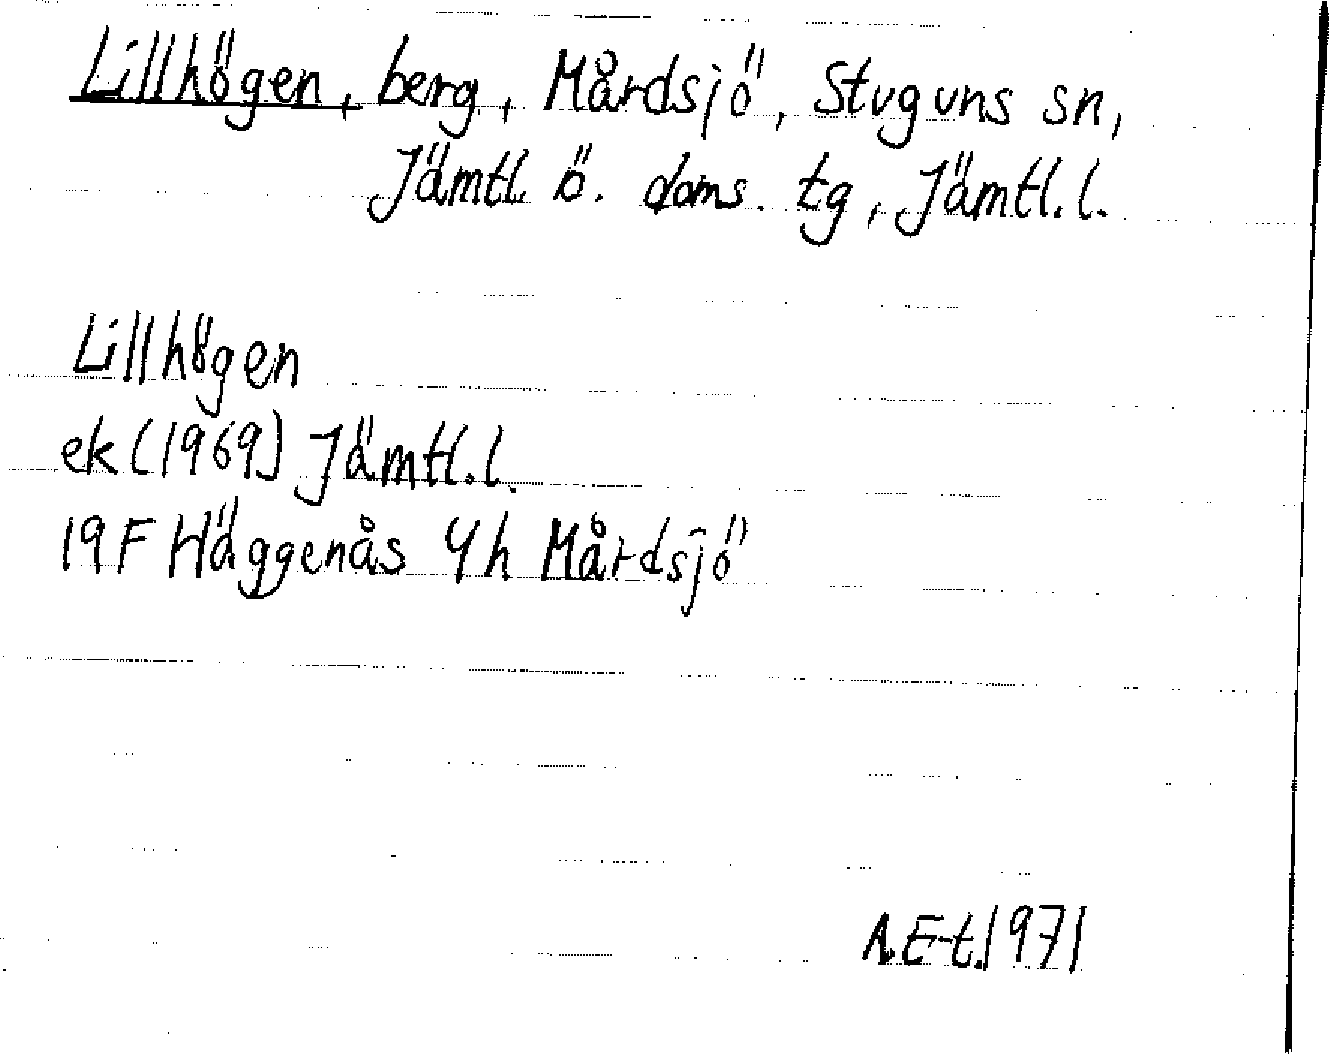 Lillhögen, berg, Mårdsjö, Stuguns sn,
Jämtl. ö. doms. tg, Jämtl. l.
Lillhögen
ek (1969) Jämtl. l.
19F Häggenås 4h Mårdsjö
A.E-t. 1971